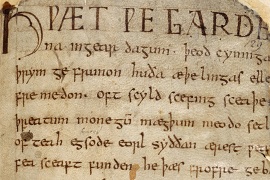 HÞÆT ÞE GARDE
na ingear dagum. þeod cyninga
þrym ge frunon huða æþelingas elle
fre medon. oft scyld scefing sceaþe
þreatum monegū mægþum meodo setl
of teah egsode eorl syððan ærest
sceaft funden he þæs frofre ge